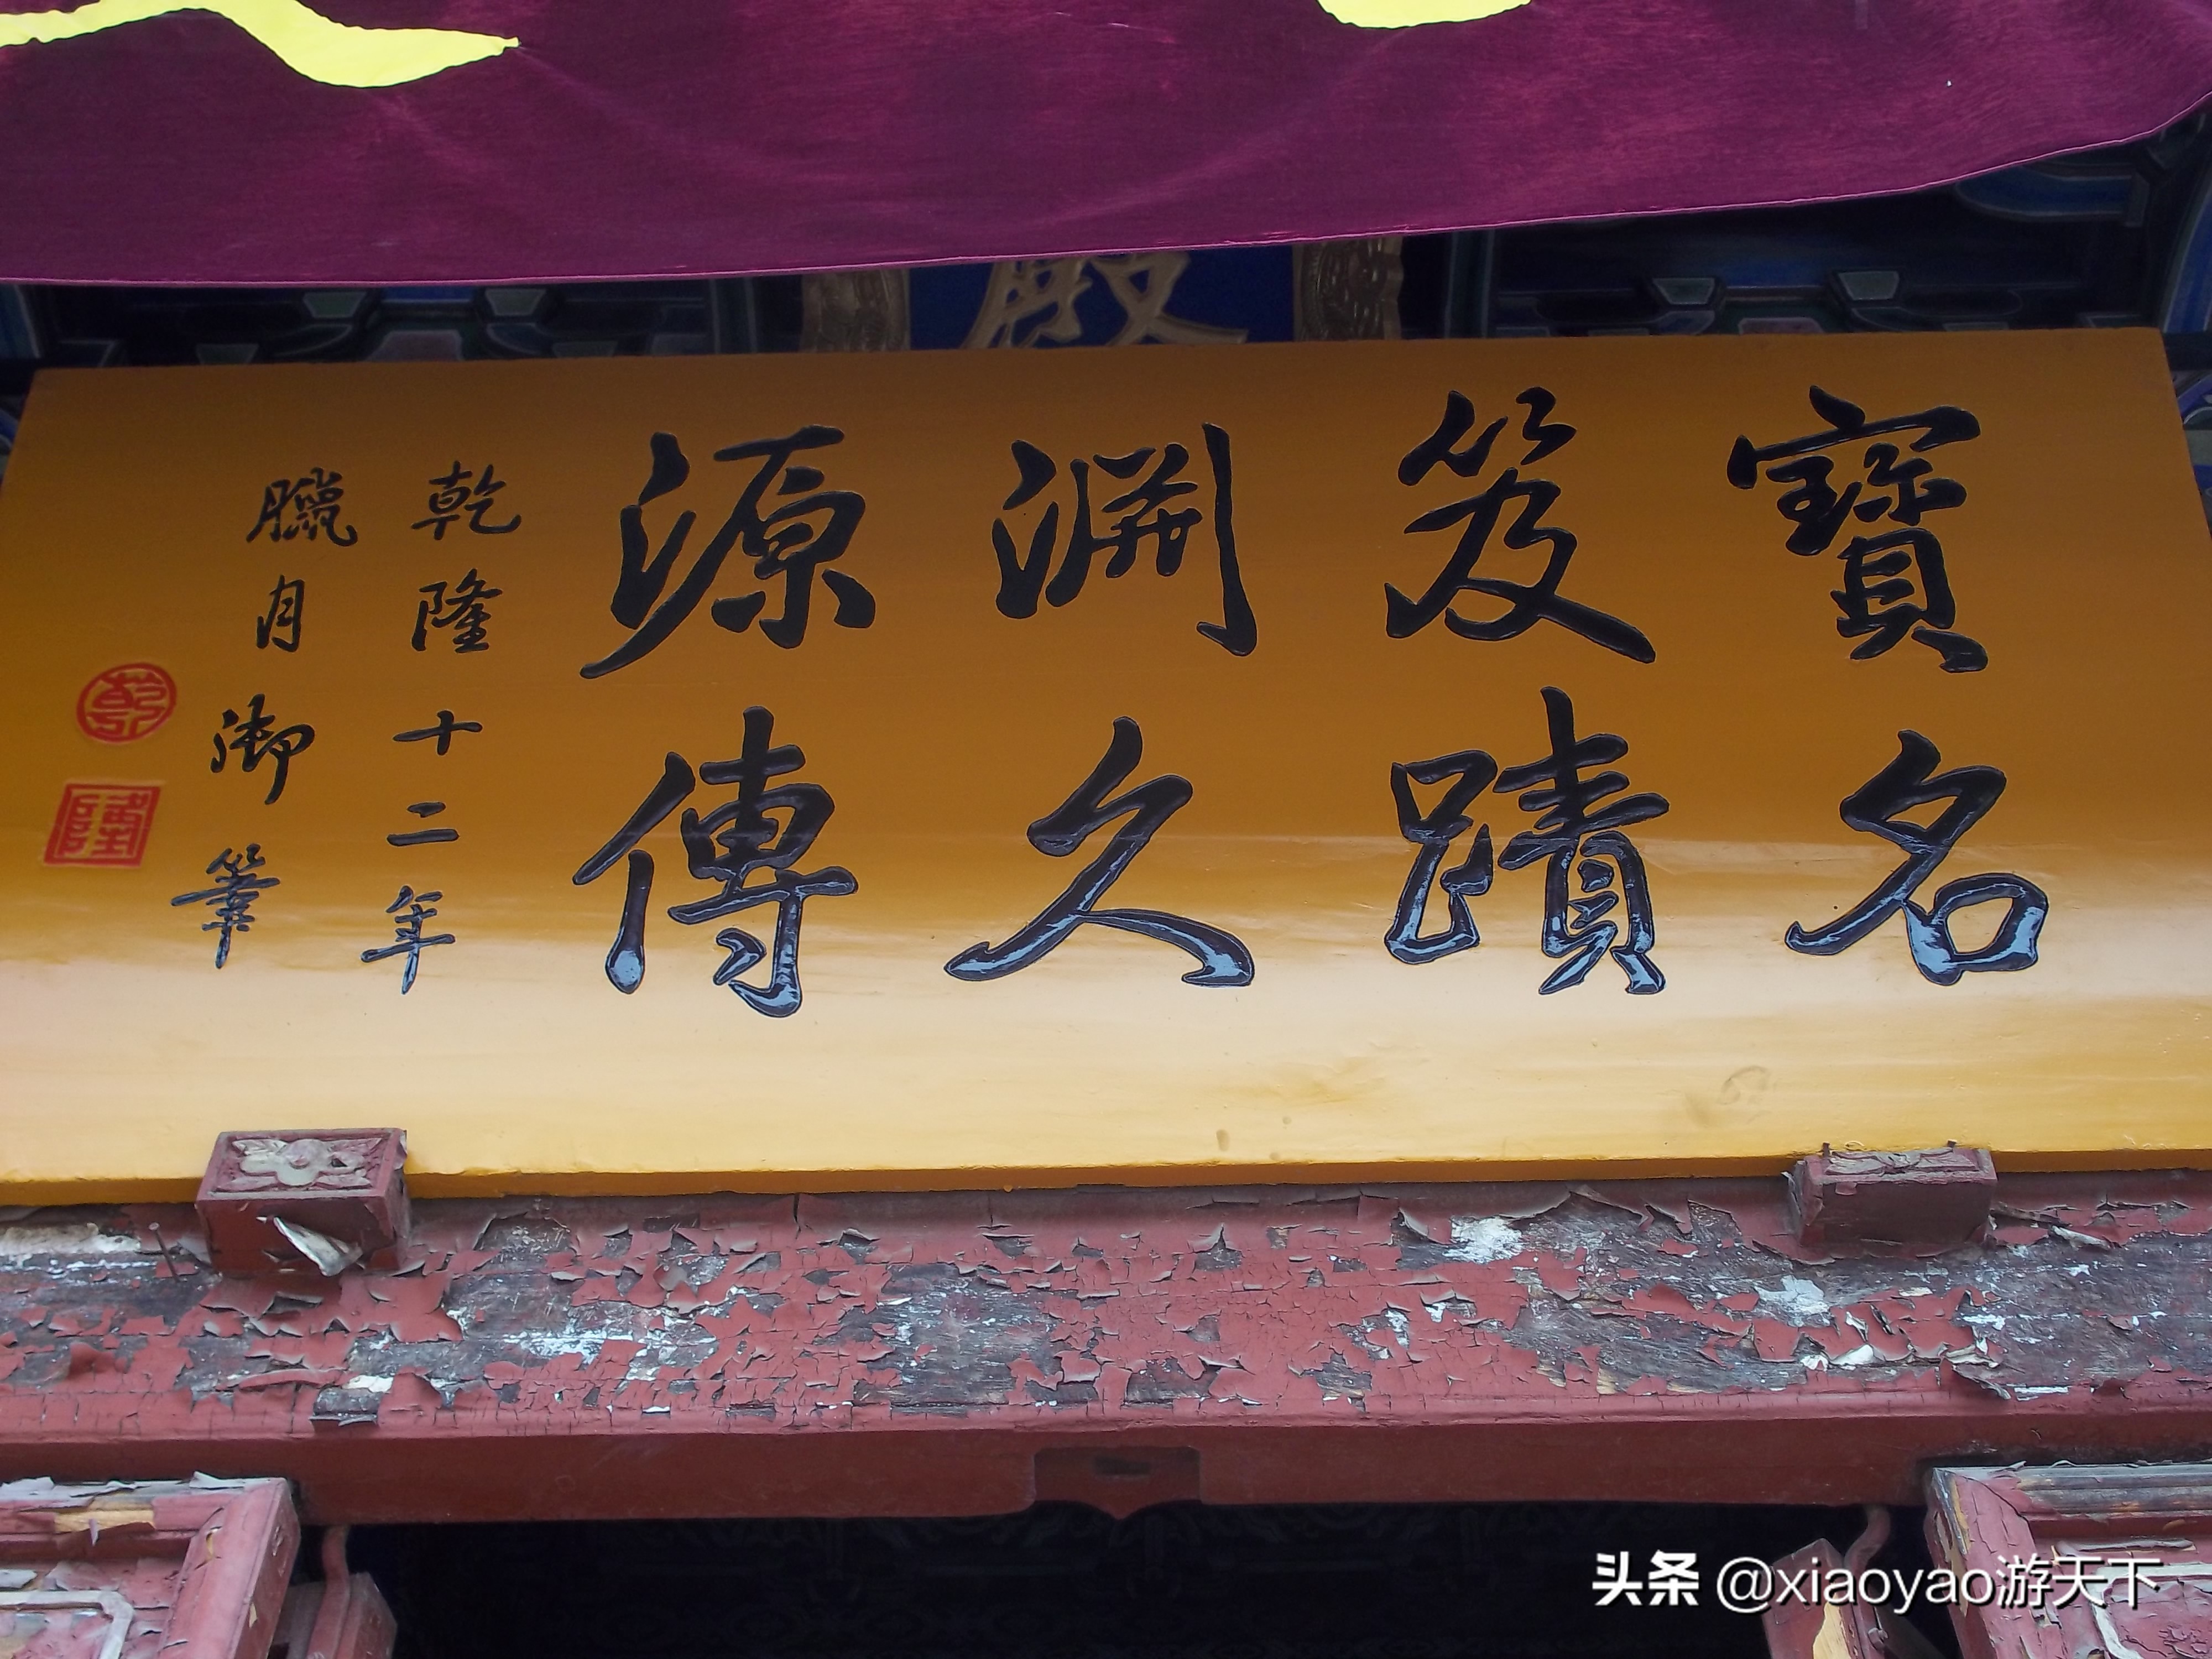 殿
寶笈淵源
名蹟久傳
乾隆十二年
臘月御筆
乾
隆
头条 @xiaoyao游天下